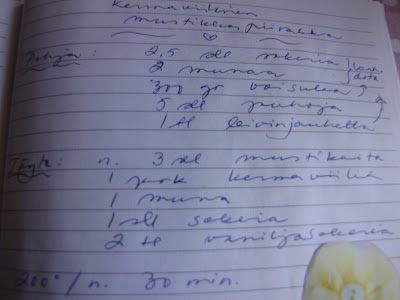 Kermaviilinen
mustikkapiirakka
Pohja: 2,5 dl sokeria
2 munaa
300 gr voisulaa
5 dl jauhoja
1 tl leivinjauhetta
Täyte: n. 3 dl mustikoita
1 purk kermaviiliä
1 muna
1 dl sokeria
2 tl vaniljasokeria
200° / n. 30 min.